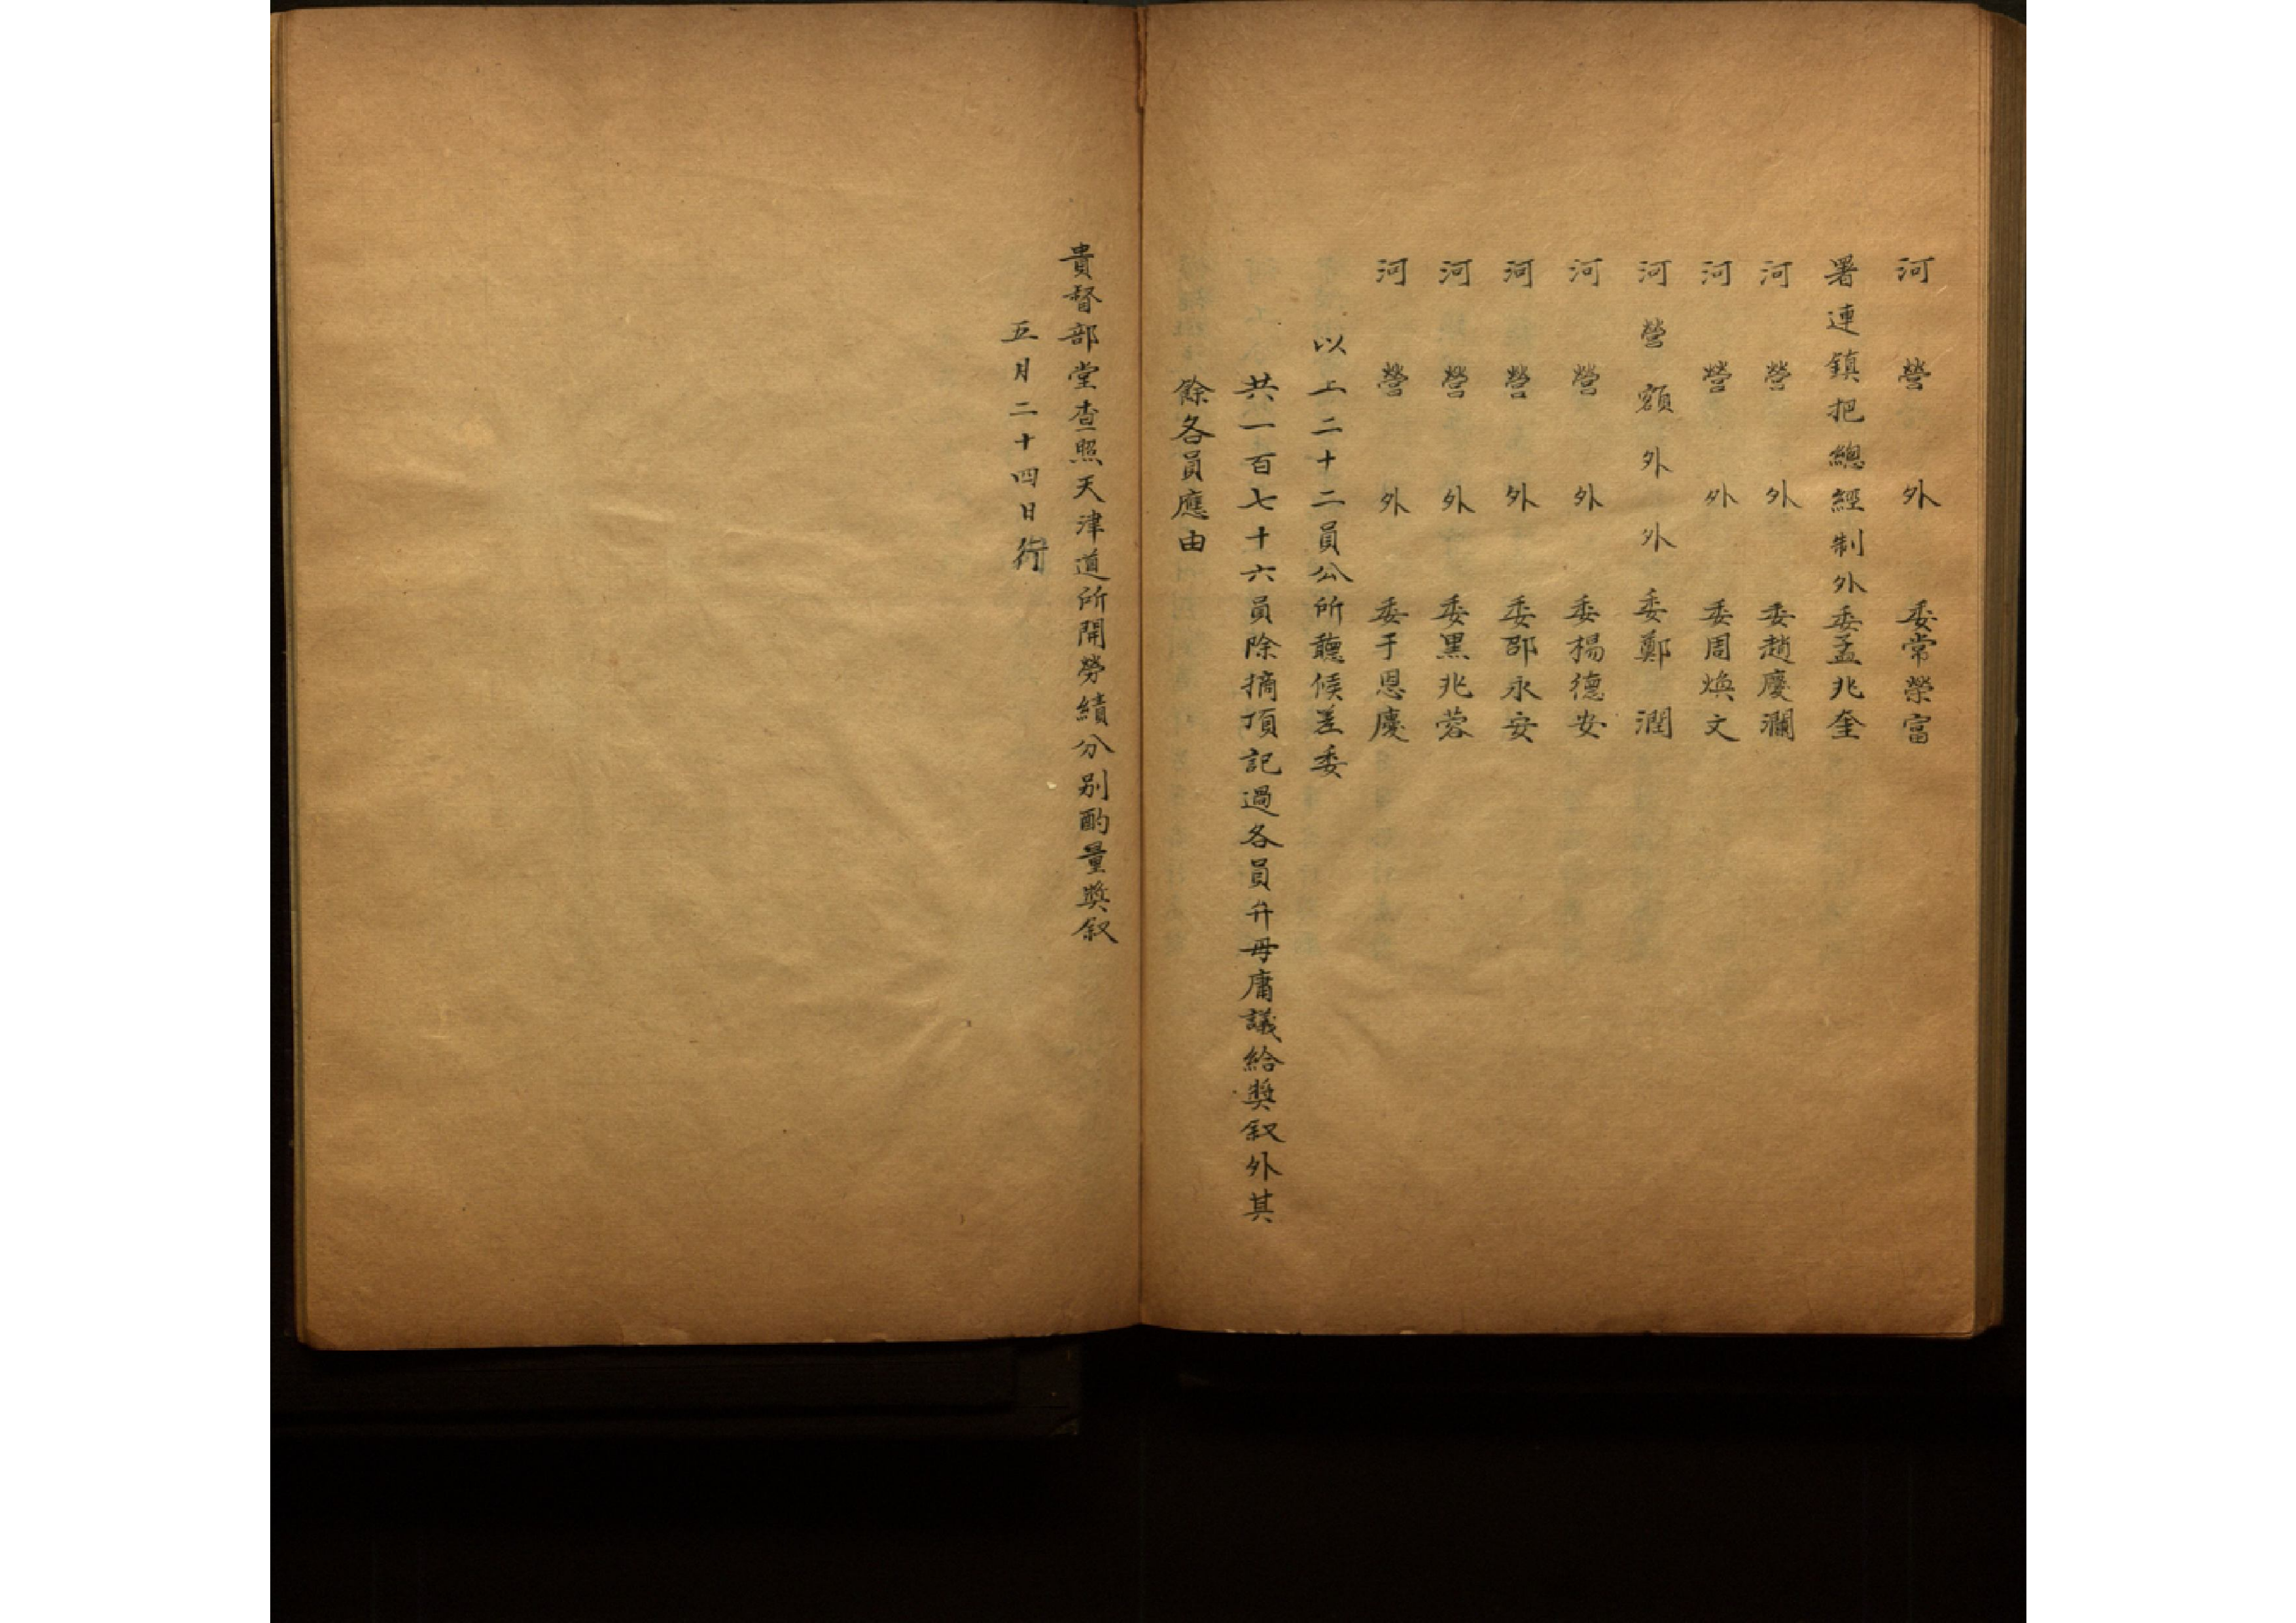 河營外委常榮富
署連鎮把總經制外委孟兆奎
河營外委趙慶瀾
河營外委周煥文
河營額外外委鄭潤
河營外委楊德安
河營外委邵永安
河營外委黑兆蓉
河營外委于恩慶
以上二十二員公所聽候差委
共一百七十六員除摘頂記過各員弁毋庸議給奬叙外其
餘各員應由
貴督部堂查照天津道所開勞績分别酌量奬叙
五月二十四日行